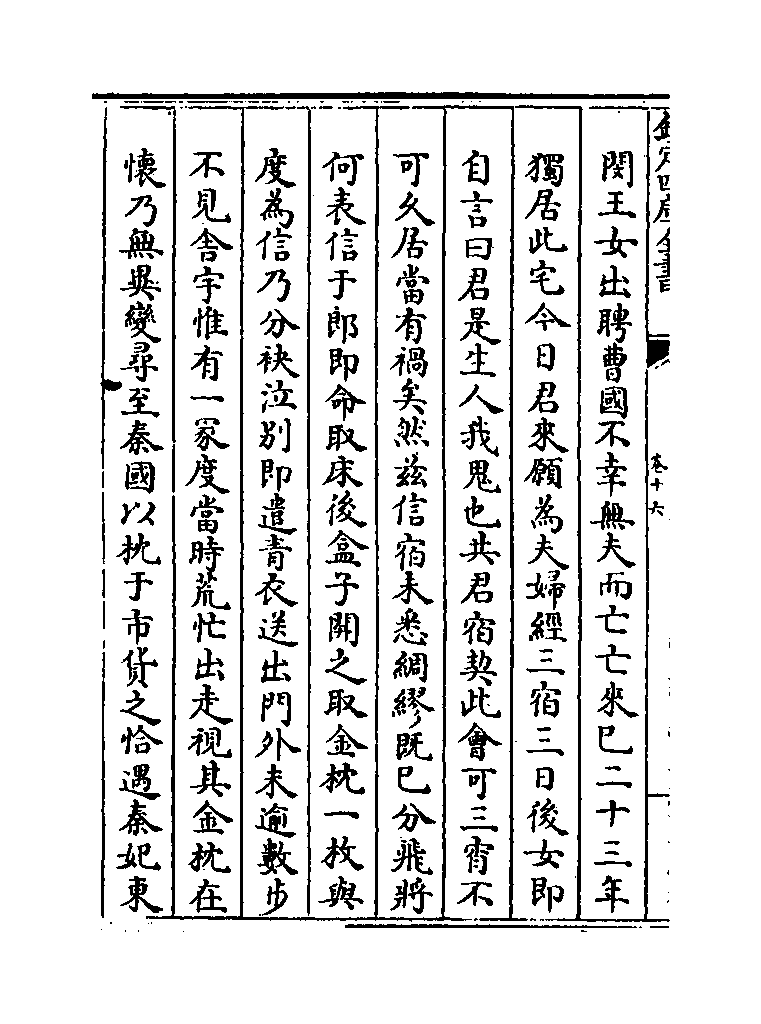 欽定四庫全書
卷十六
閔王女出聘曹國不幸無夫而亡亡來已二十三年
獨居此宅今日君來願為夫婦經三宿三日後女即
自言曰君是生人我鬼也共君宿契此會可三宵不
可久居當有禍矣然兹信宿未悉綢繆既已分飛將
何表信于郎即命取床後盒子開之取金枕一枚與
度為信乃分袂泣别即遣青衣送出門外未逾數步
不見舍宇惟有一冢度當時荒忙出走視其金枕在
懷乃無異變尋至秦國以枕于市貨之恰遇秦妃東